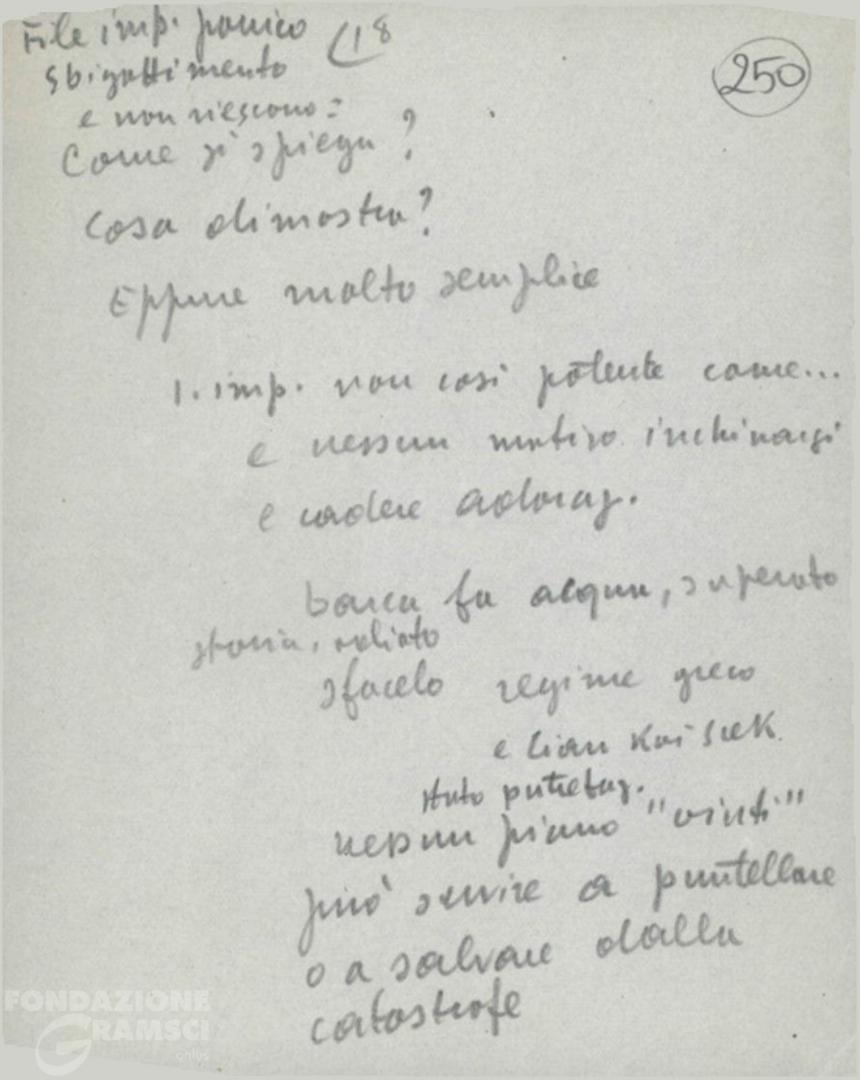 File imp. panico (18
sbigottimento
250
e non riescono:
Come si spiega?
Cosa dimostra?
Eppure molto semplice
1. imp. non così potente come...
e nessun motivo inchinarsi
e cadere adoraz.
barca fa acqua, superato
storia, odiato
sfacelo regime greco
e Cian Kai Scek
stato putrefaz.
nessun piano "aiuti"
può servire a puntellare
o a salvare dalla
catastrofe
FONDAZIONE
GRAMSCI
onlus